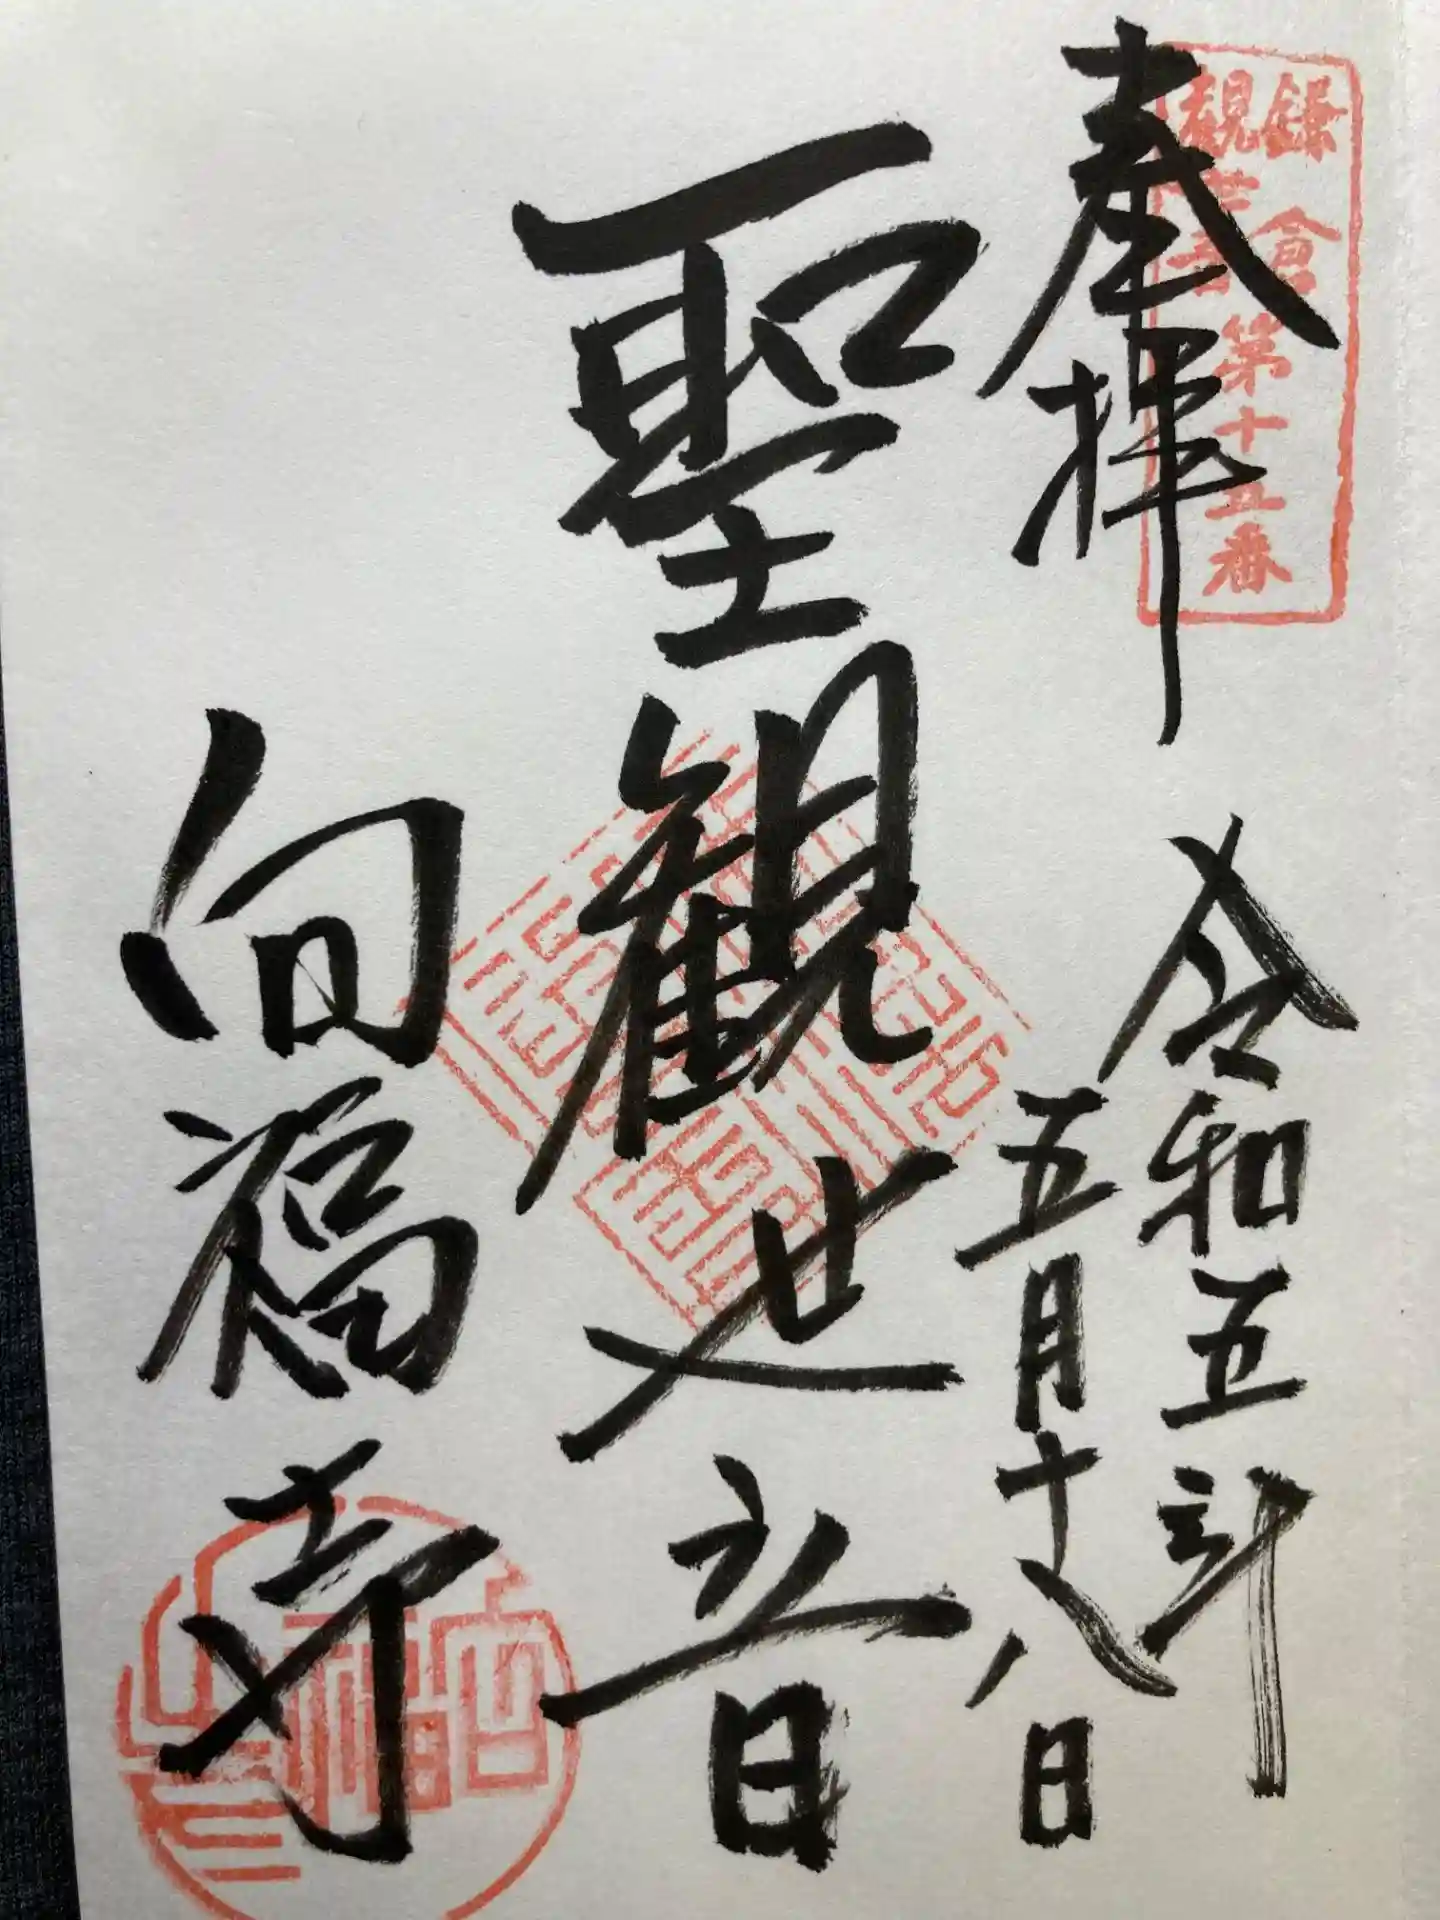 鎌倉
観世音
第十五番
奉拝
令和五年
五月十八日
聖観世音
向福寺